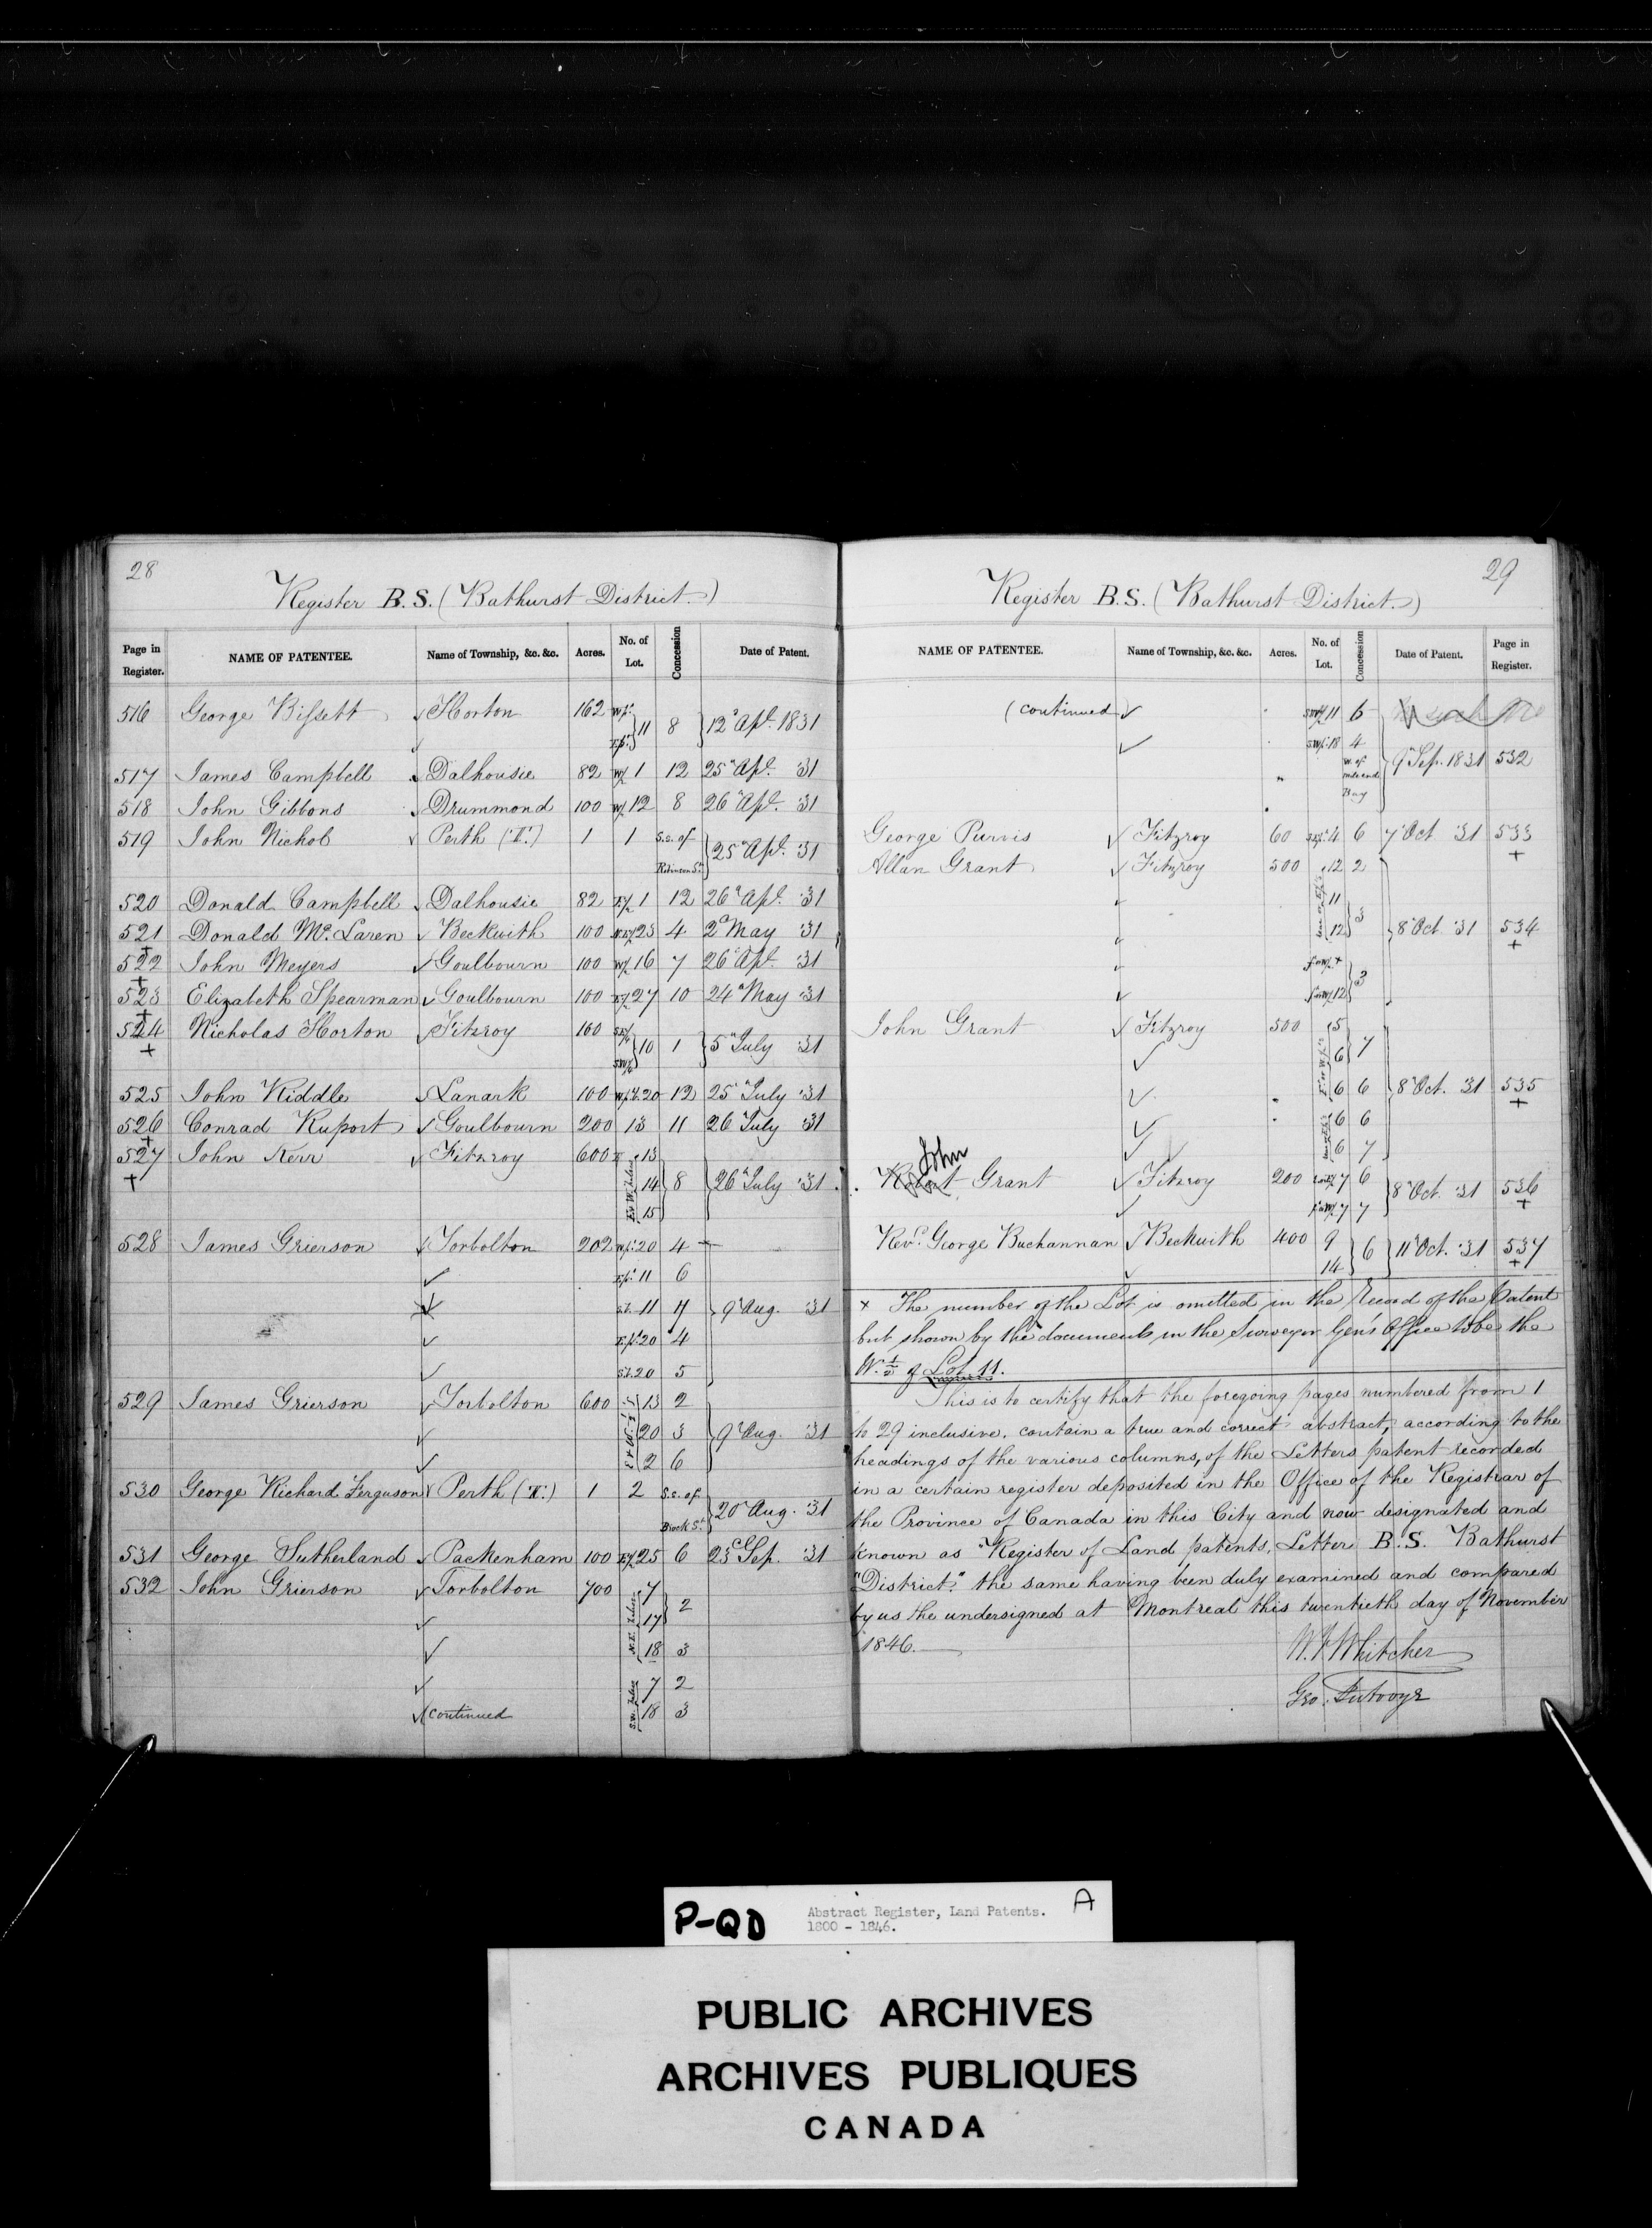 28
Register B.S. (Bathurst District.)
Page in Register. NAME OF PATENTEE. Name of Township, &c. &c. Acres. No. of Lot. Concession Date of Patent.
516 George Bissett Horton 162 W pt. E pt. 11 8 12 Apl. 1831
517 James Campbell Dalhousie 82 W½ 1 12 25 Apl. '31
518 John Gibbons Drummond 100 W½ 12 8 26 Apl. '31
519 John Nichol Perth (T.) 1 1 S.S. of Robinson St. 25 Apl. '31
520 Donald Campbell Dalhousie 82 E½ 1 12 26 Apl. '31
521 Donald Mc. Laren Beckwith 100 N.E½ 23 4 2 May '31
522 John Meyers Goulbourn 100 W½ 16 7 26 Apl. '31
523 Elizabeth Spearman Goulbourn 100 E½ 27 10 24 May '31
524 Nicholas Horton Fitzroy 160 10 1 5 July '31
525 John Riddle Lanark 100 20 12 25 July '31
526 Conrad Ruport Goulbourn 200 13 11 26 July '31
527 John Kerr Fitzroy 600 13
14 8 26 July '31
15
528 James Grierson Torbolton 202 W pt. 20 4
E pt. 11 6
11 7 9 Aug. '31
E pt. 20 4
20 5
529 James Grierson Torbolton 600 13 2
20 3 9 Aug. '31
2 6
530 George Richard Ferguson Perth (T.) 1 2 S.S. of Brock St. 20 Aug. '31
531 George Sutherland Packenham 100 E½ 25 6 23 Sep. '31
532 John Grierson Torbolton 700 7
17 2
18 3
7 2
(continued 18 3
29
Register B.S. (Bathurst District.)
NAME OF PATENTEE. Name of Township, &c. &c. Acres. No. of Lot. Concession Date of Patent. Page in Register.
(continued 11 6
18 4
W. of Bay 9 Sep. 1831 532
George Purvis Fitzroy 60 4 6 7 Oct '31 533
Allan Grant Fitzroy 500 12 2
11
12 3 8 Oct. '31 534
+
12 3
John Grant Fitzroy 500 5
6 7
6 6 8 Oct. '31 535
6 6
6 7
John
Robert Grant Fitzroy 200 7 6
7 7 8 Oct. '31 536
Revd. George Buchannan Beckwith 400 9
14 6 11 Oct. '31 537
x The number of the Lot is omitted in the Record of the Patent
but shown by the documents in the Surveyor Gen's Office to be the
W. ½ of Lot 11.
This is to certify that the foregoing pages numbered from 1
to 29 inclusive, contain a true and correct abstract, according to the
headings of the various columns, of the Letters patent recorded
in a certain register deposited in the Office of the Registrar of
the Province of Canada in this City and now designated and
known as "Register of Land patents, Letter B.S. Bathurst
"District." the same having been duly examined and compared
by us the undersigned at Montreal this twentieth day of November
1846.
W. F. Whitcher
Geo. Futvoye
P-QD Abstract Register, Land Patents. A
1800 - 1846.
PUBLIC ARCHIVES
ARCHIVES PUBLIQUES
CANADA